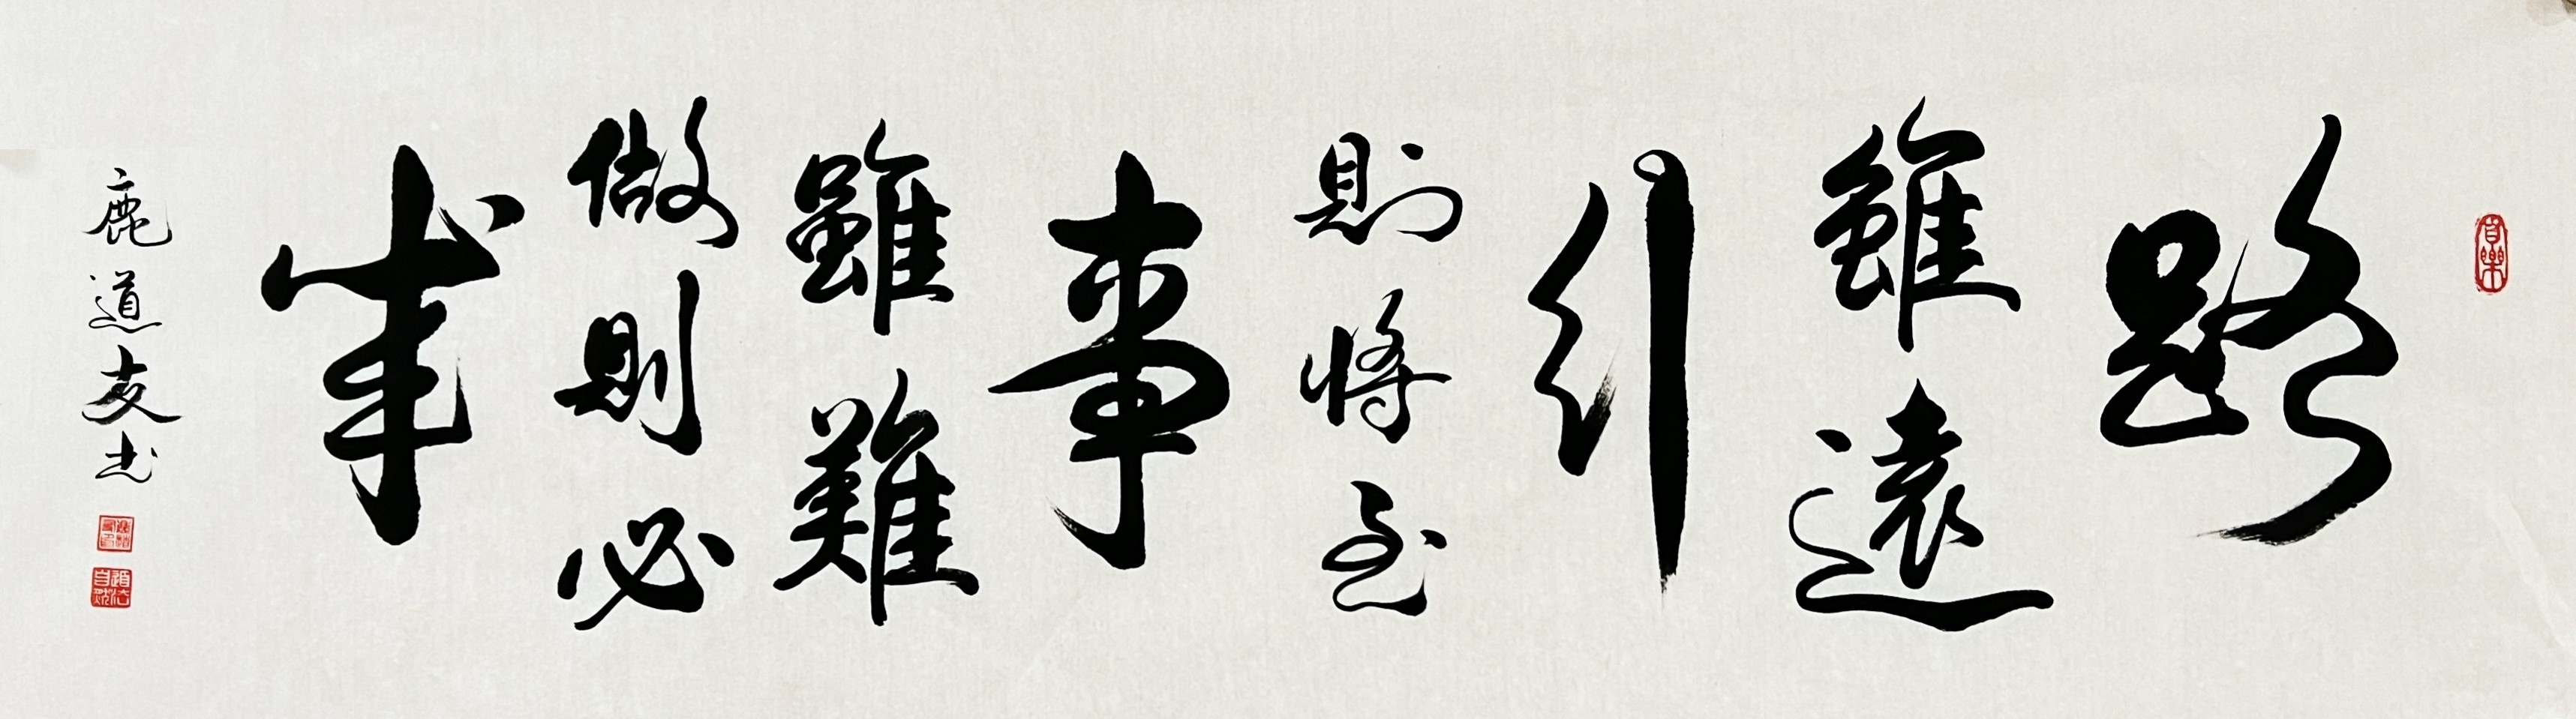 路
雖遠
行
則將至
事
雖難
做則必
成
鹿道友书